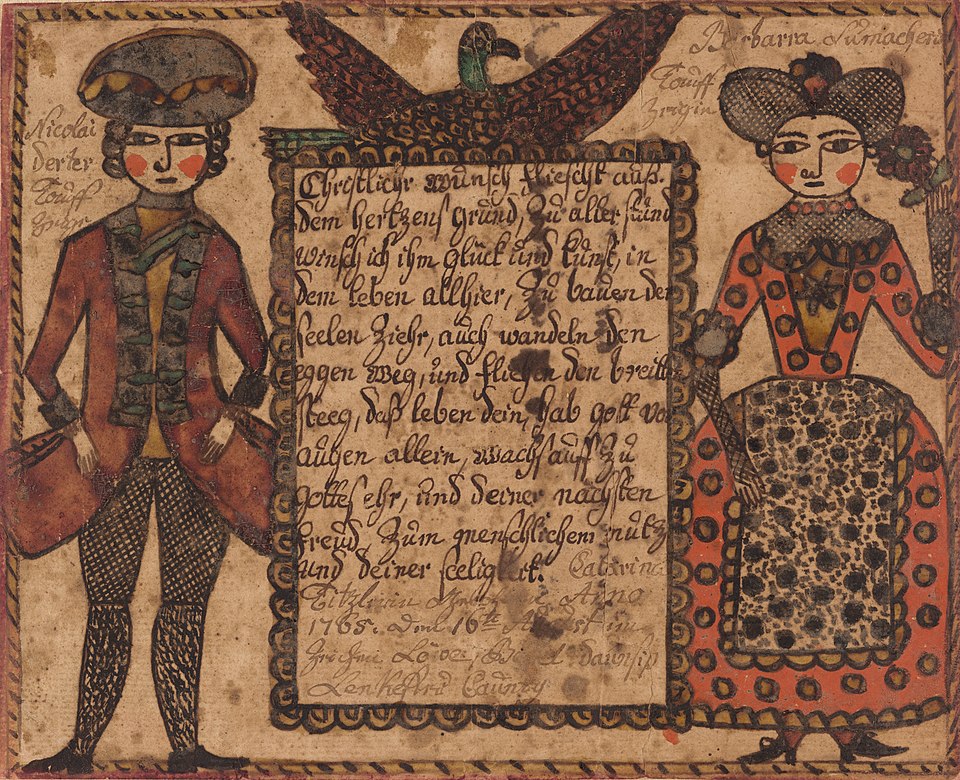 Nicolai
derter
Touff
Zeiger
Barbarra Sumacherin
Touff
Zeigin
Christlicher Wunsch fliescht auß.
dem hertzens grund, Zu aller stund
winsch ich ihm glück und kunst, in
dem leben allhier, Zu bauen der
seelen Ziehr, auch wandeln den
eggen Weg, und fliehen den breitten
steeg, daß leben dein, hab gott vor
augen allein, wachs auff Zu
gottes ehr, und deiner nachsten
freud Zum menschlichem nutz
und deiner seeligkeit. Catarina
Anno
1765. den 16te August im
Lenkester Caunty